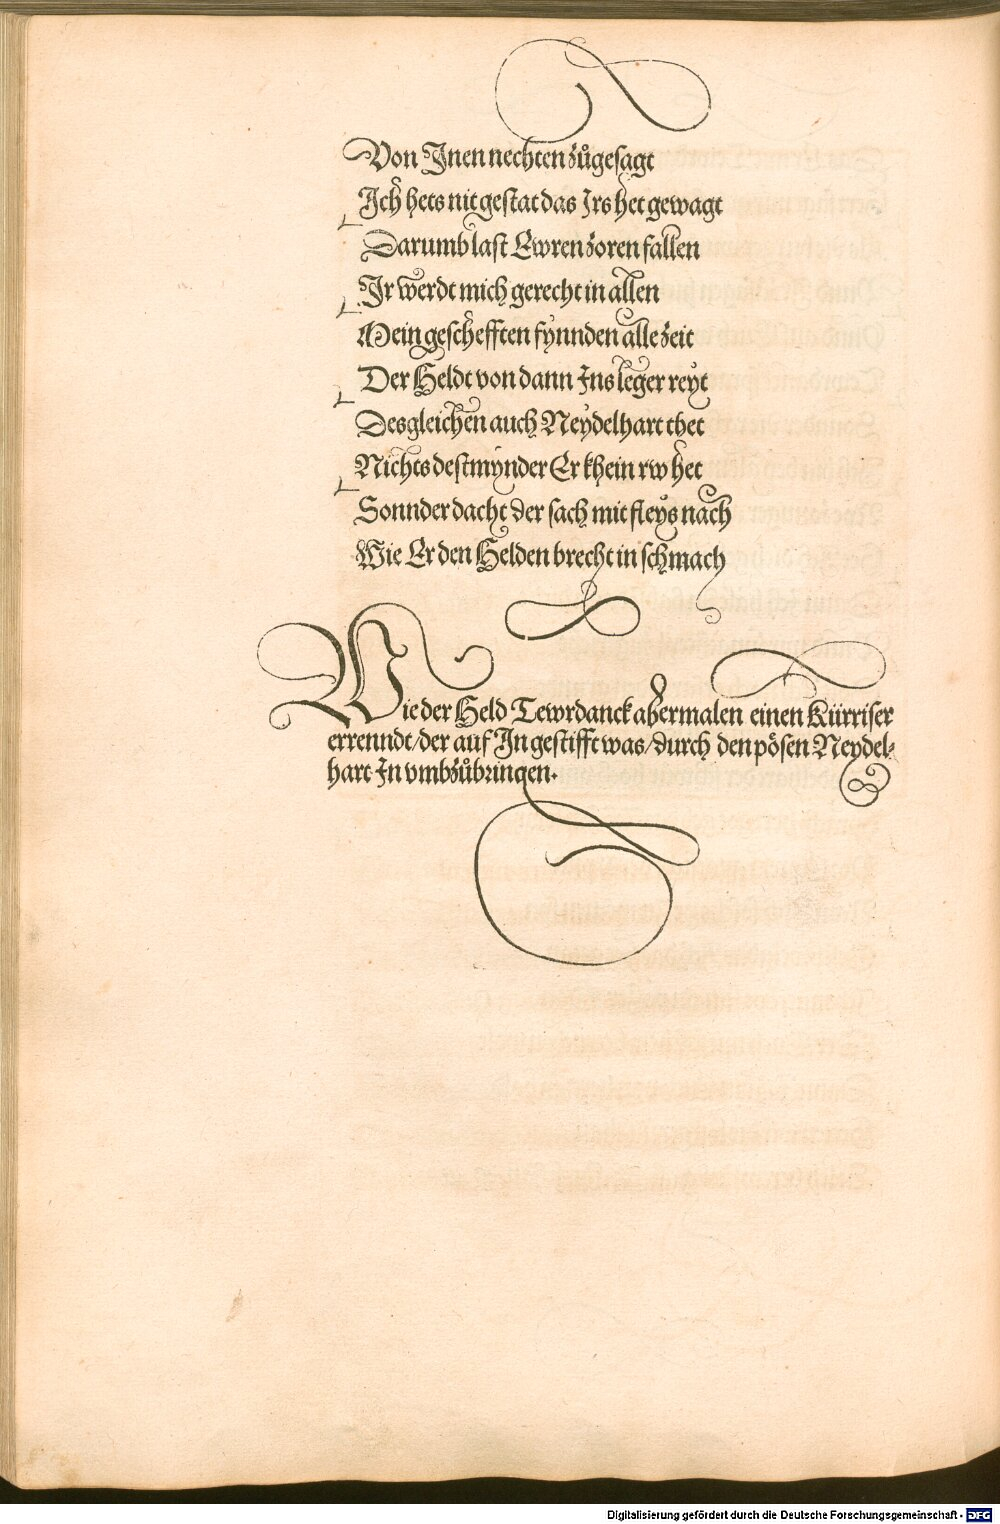 Von Jnen nechten zůgesagt
Ich hets nit gestat das Irs het gewagt
Darumb last Ewren zoren fallen
Ir werdt mich gerecht in allen
Mein geschefften fynnden alle zeit
Der Heldt von dann Ins leger reyt
Desgleichen auch Neydelhart thet
Nichts destmynder Er khein rw het
Sonnder dacht der sach mit fleys nach
Wie Er den Helden brecht in schmach
Wie der Held Tewrdanck abermalen einen Kürriser
errenndt/der auf Jn gestifft was/durch den pösen Neydel⸗
hart In vmbzůbringen.
Digitalisierung gefördert durch die Deutsche Forschungsgemeinschaft - DFG